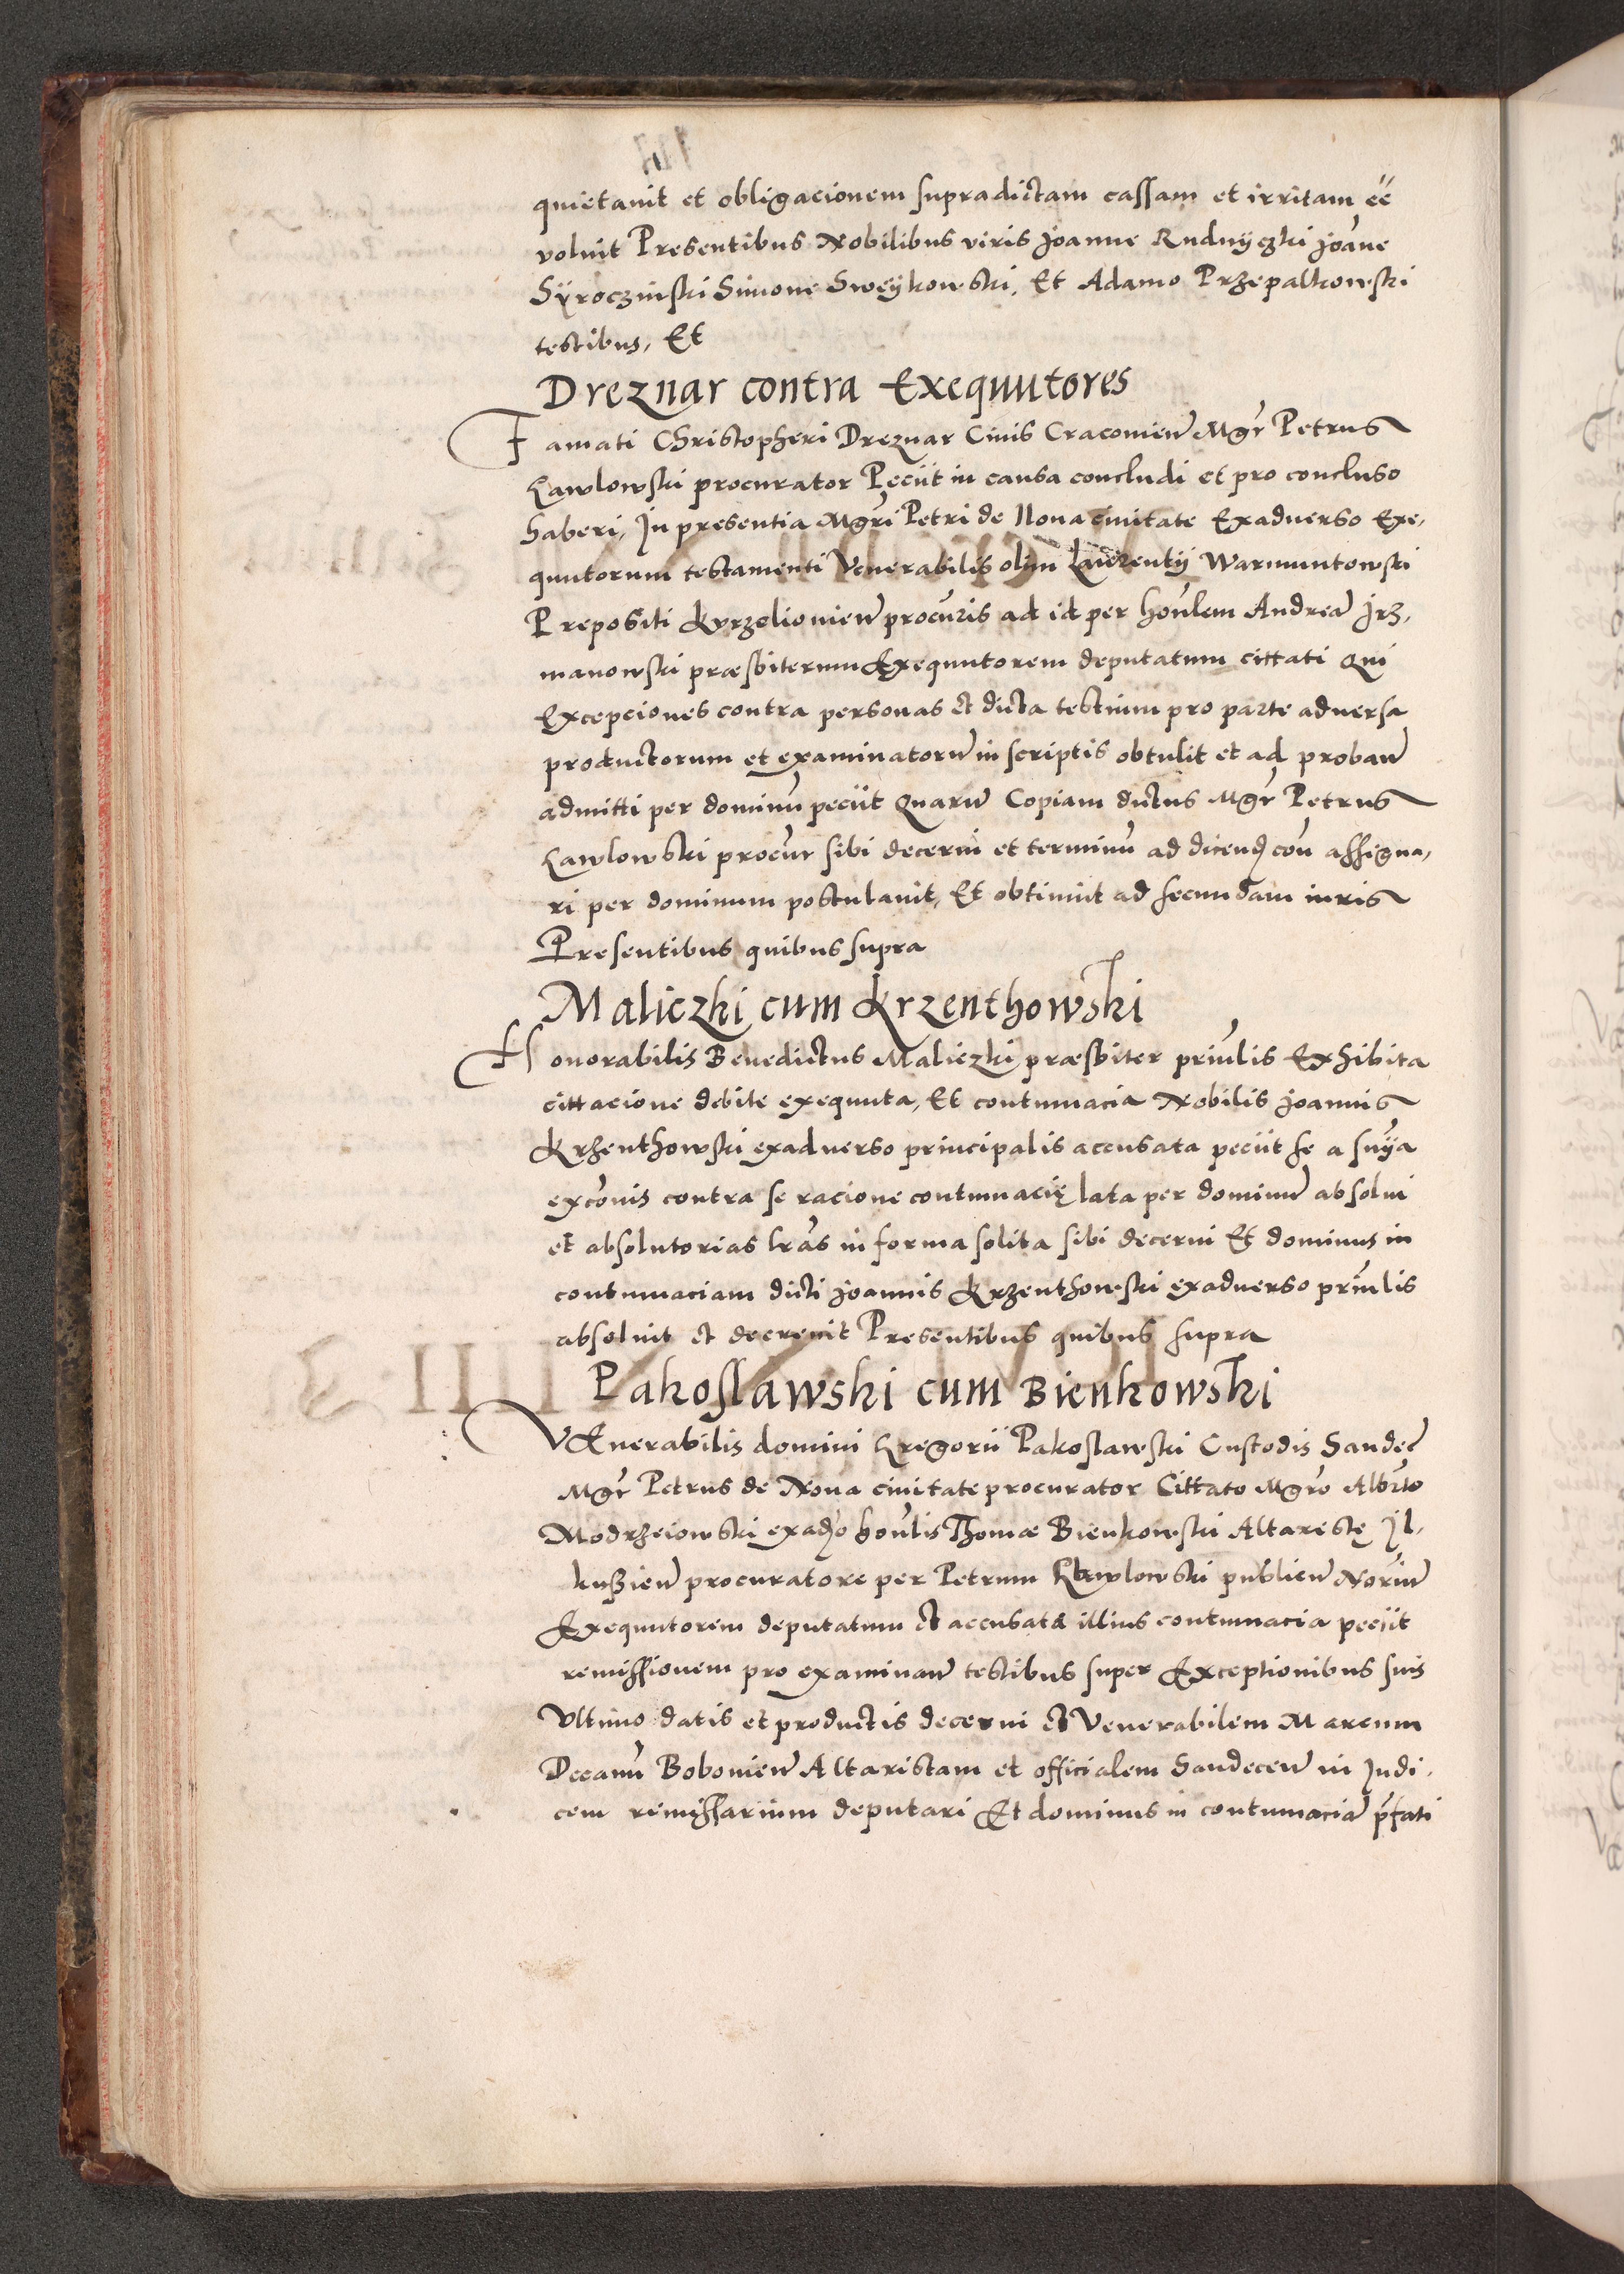 quietauit et obligacionem supradictam cassam et irritam ee͂
voluit Presentibus Nobilibus viris Joanne Rudnyczki joan̄e
Syroczinski Simone Sweykowski, Et Adamo Przepalkowski
testibus, Et
Dreznar contra Exequutores
Famati Christopheri Dreznar Ciuis Cracouien̄ Mgr̄ Petrus
Lawlowski procurator Peciit in causa concludi et pro concluso
haberi, In presentia Mgr̄i Petri de Noua ciuitate Exaduerso Exe,
quutorum testamenti Venerabilis olim Laurentij Warmuntowski
Prepositi Kurzelouien̄ procūris ad id per hon̄lem Andreā Jrz,
manowski præsbiterum Exequutorem deputatum cittati Qui
Excepciones contra personas et dicta testium pro parte aduersa
productorum et examinatorū in scriptis obtulit et ad proban̄
admitti per dominū peciit Quarū Copiam dictus Mgr̄ Petrus
Lawlowski procūr sibi decerni et terminū ad dicend con̄ assigna,
ri per dominum postulauit, Et obtinuit ad secundam iuris
Presentibus quibus supra
Maliczki cum Krzenthowski
Honorabilis Benedictus Maliczki præsbiter prin̄lis Exhibita
cittacione debite exequuta, Et contumacia Nobilis joannis
Krzenthowski exaduerso principalis accusata peciit se a sn̄ya
exco͂nis contra se racione contumacię lata per dominū absolui
et absolutorias lr̄as in forma solita sibi decerni Et dominus in
contumaciam dicti joannis Krzenthowski exaduerso prin̄lis
absoluit et decreuit Presentibus quibus supra
Pakoslawski cum Bienkowski
VEnerabilis domini Gregorii Pakoslawski Custodis Sandec̄
Mgr̄ Petrus de Noua ciuitate procurator Cittato Mgr̄o Alb̄rto
Modrzeiowski exadv̄o hon̄lis Thomæ Bienkowski Altaristę Jl,
kussien̄ procuratore per Petrum Lawlowski publicū Nōriū
Exequutorem deputatum et accusata illius contumacia peciit
remissionem pro examinan̄ testibus super Exceptionibus suis
Vltimo datis et productis decerni et Venerabilem Marcum
Decanū Bobouien̄ Altaristam et officialem Sandecen̄ in Judi,
cem remissarium deputari Et dominus in contumaciā pr̄fati